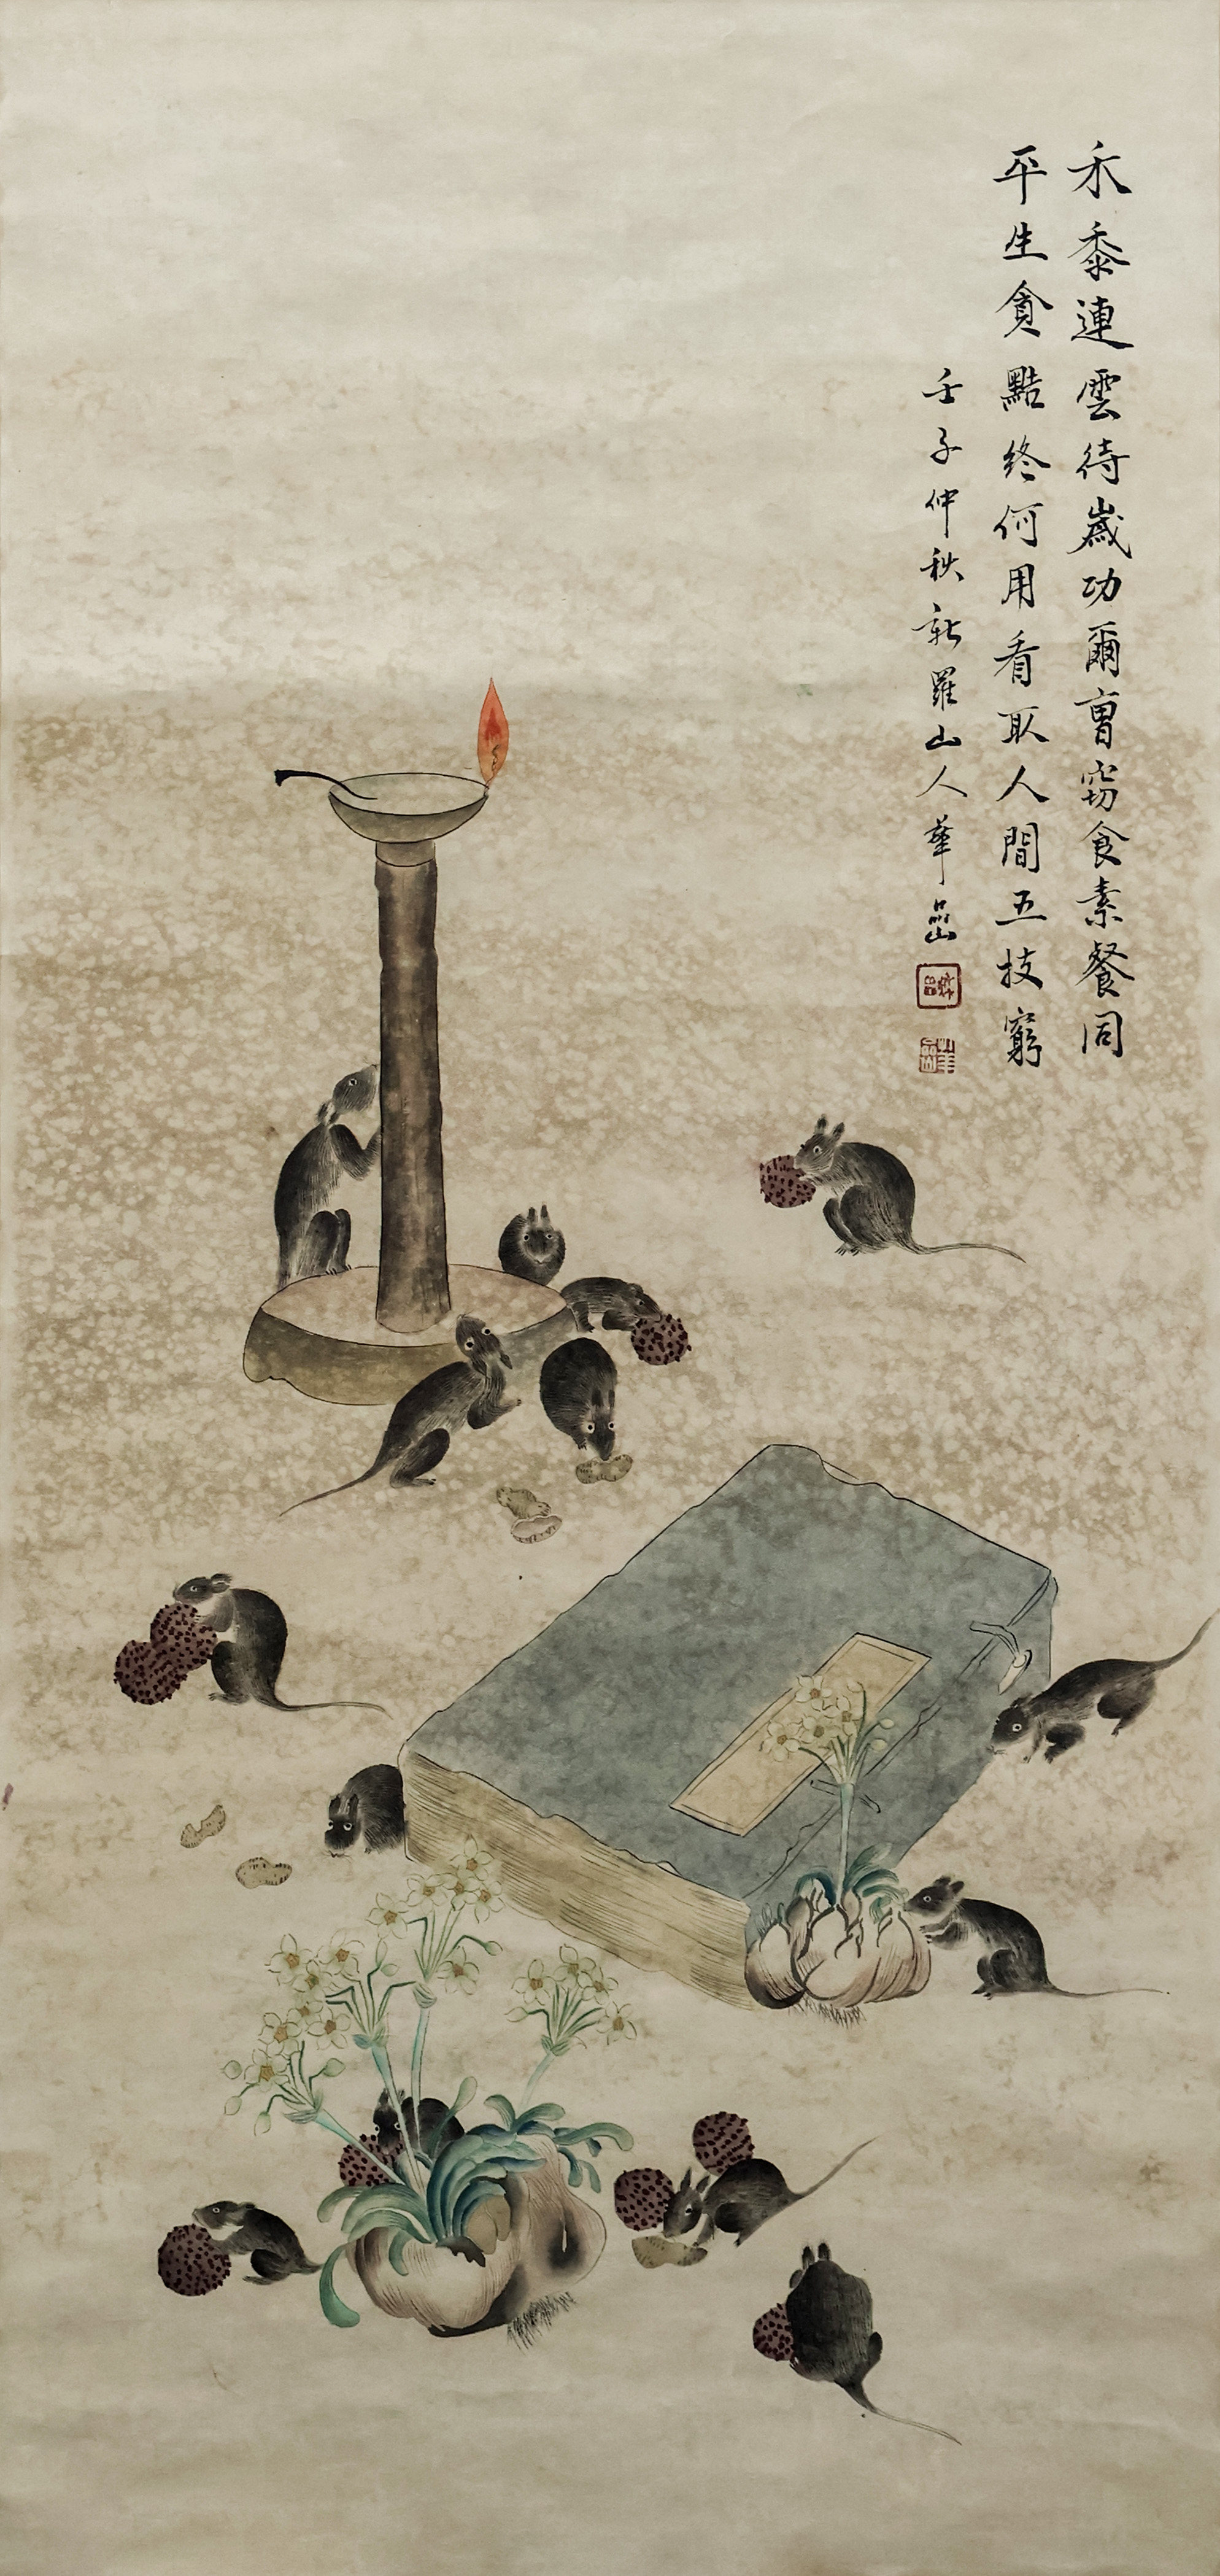 禾黍連雲待歲功爾曹竊食素餐同
平生貪黠終何用看取人間五技窮
壬子仲秋新羅山人華嵒